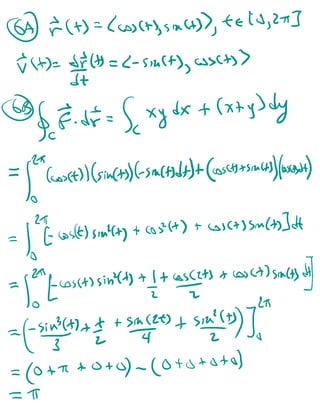 6A) r⃗(t) = <cos(t), sin(t)>, t ∈ [0, 2π]
v⃗(t) = dr⃗(t)/dt = <-sin(t), cos(t)>
6B) ∮_C F⃗·dr⃗ = ∫_C xy dx + (x+y) dy
= ∫_0^{2π} (cos(t))(sin(t))(-sin(t)dt) + (cos(t)+sin(t))(cos(t)dt)
= ∫_0^{2π} [-cos(t) sin²(t) + cos²(t) + cos(t) sin(t)] dt
= ∫_0^{2π} [-cos(t) sin²(t) + 1/2 + cos(2t)/2 + cos(t) sin(t) dt]
= (-sin³(t)/3 + t/2 + sin(2t)/4 + sin²(t)/2)]_0^{2π}
= (0 + π + 0 + 0) - (0+0+0+0)
= π